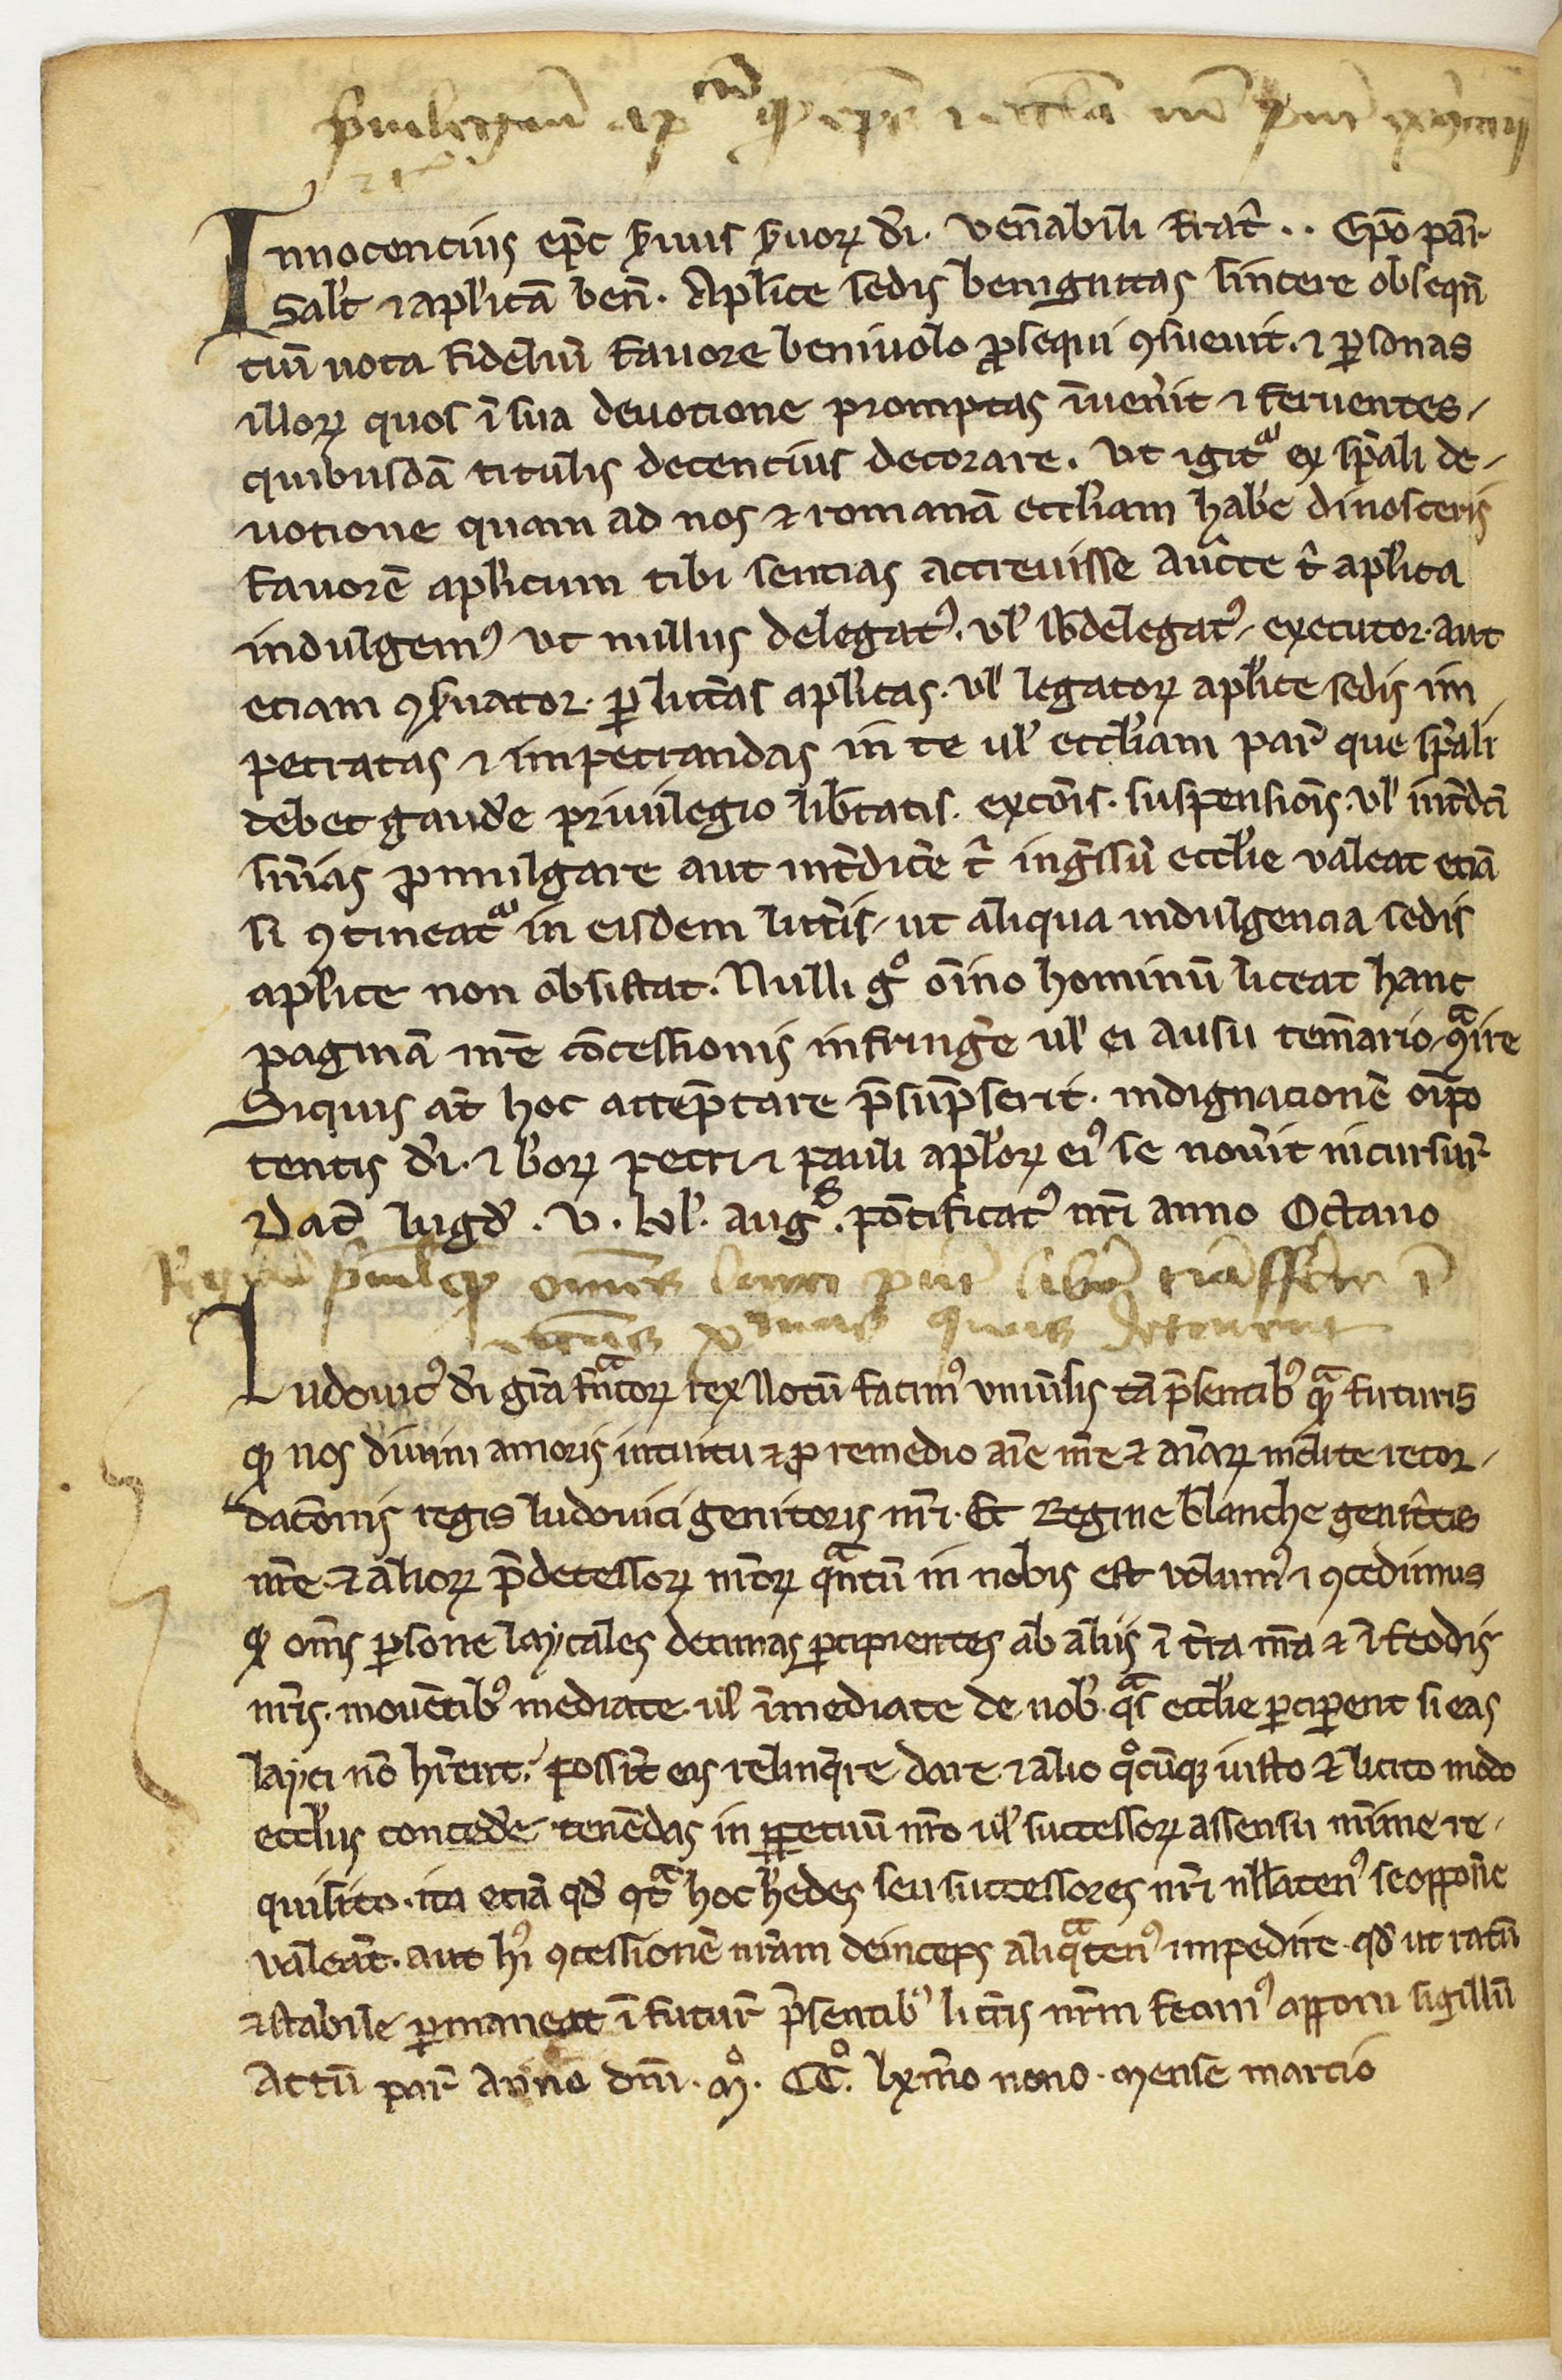 Innocencius ep̅c s̅uus s̅uoꝝ dī. Ven̅abili frat̅r .. Ep̅o par̅.
Salt̅ ⁊ apl̅icā ben̅. Apl̅ice sedis benignitas sincere obsequn̅
cium uota fideliū fauore beniuolo ꝓsequi ꝯsueuit. ⁊ ꝑsonas
illoꝝ quos ī sua deuocione promptas īuen̅it ⁊ feruentes /
quibusdā titulis decencius decorare. Vt igit᷑ ex sp̅ali de /
uocione quam ad nos ⁊ romanā eccl̅iam hab̅e dinosceris
fauorē apl̅icum tibi sencias accreuisse Auct̅te t̅ apl̅ica
indulgemꝰ vt nullus delegatꝰ. vl̅ s̅bdelegatꝰ / executor. aut
eciam ꝯs̅uator. ꝑ litt̅as apl̅icas. vl̅ legatoꝝ apl̅ice sedis im /
petratas ⁊ impetrandas in te ul̅ eccl̅iam par̅ que sp̅ali
debet gaud̅e priuilegio lib̅tatis. excōis. suspensiōis. vl̅ int̅dc̅i
sn̅ias ꝓmulgare aut int̅dic̅e t̅ ingr̅ssū eccl̅ie valeat eciā
si ꝯtineat᷑ in eisdem litt̅is / ut aliqua indulgencia sedis
apl̅ice non obsistat. Nulli gͦ oīno hominū liceat hanc
paginā nr̅e cōcessionis infring̅e ul̅ ei ausu tem̅ario ꝯͣire
Siquis aūt hoc attep̅tare p̅sūp̅serit. indignacionē oīpo
tentis dī. ⁊ b̅oꝝ petri ⁊ pauli apl̅oꝝ eiꝰ se nou̅it incursur̅
Dat̅ lugd̅. V. kl̅. aug. pōtificatꝰ nr̅i anno Octauo
Ludouicꝰ dī gr̅a fnͣcoꝝ rex Notū facimꝰ vniu̅sis tā p̅sentibꝰ qͣ futuris
ꝙ nos diuini amoris intuitu ⁊ ꝓ remedio aīe nr̅e ⁊ aīaꝝ inclite recor /
dac̅onis regis ludouici genitoris nr̅i. Et Regine blanche genit̅cis
nr̅e. ⁊ alioꝝ p̅decessoꝝ nr̅oꝝ qͣntū in nobis est volumꝰ ⁊ ꝯcedimus
ꝙ om̅s ꝑsone laycales decimas ꝑcipientes ab aliis ī t̅ra nr̅a ⁊ ī feodis
nr̅is. mouētibꝰ mediate. ul̅ īmediate de nob̅. qͣs eccl̅ie ꝑcip̅ent si eas
layci nō hr̅ent. possīt eas relinq̅re dare ⁊ alio qͦcūqꝫ iusto ⁊ licito modo
eccl̅iis conced̅e. tenēdas in ꝑpetuū nr̅o ul̅ successoꝝ assensu mīime re /
quisito. ita eciā qd̅ ꝯtͣ hoc h̅edes seu successores nr̅i nll̅atenꝰ se oppon̅e
valeāt. aut hꝰ ꝯcessionē nr̅am deinceps aliqͣtenꝰ impedire. qd̅ ut ratū
⁊ stabile ꝑmaneat ī futur̅ p̅sentibꝰ litt̅is nr̅m fecimꝰ apponi sigillū
Actū par̅ Anno dn̅i. Mͦ. CCͦ. lxm̅o nono. Mense marcio